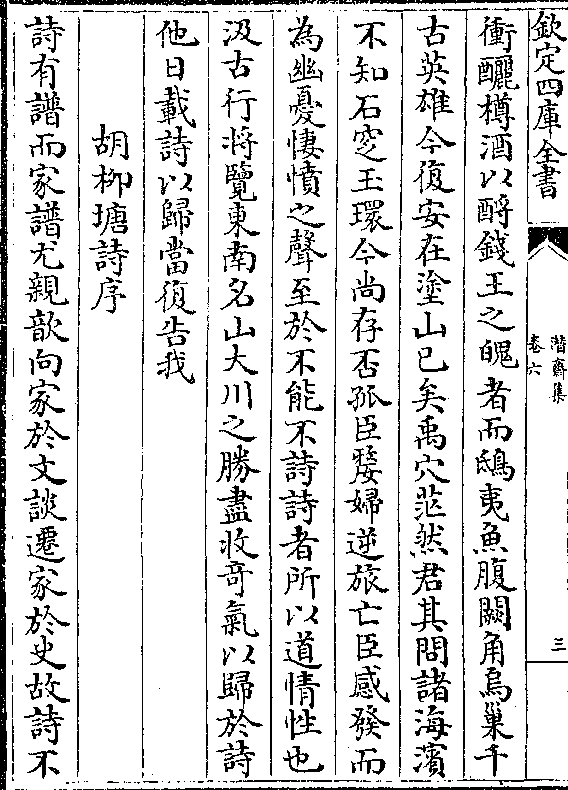 欽定四庫全書
潛齋集
卷六
三
衝釃樽酒以酹錢王之魄者而鴟夷魚腹闕角烏巢千
古英雄今復安在塗山已矣禹穴茫然君其問諸海濱
不知石窆王環今尚存否孤臣嫠婦逆旅亡臣感發而
為幽憂悽憤之聲至於不能不詩詩者所以道情性也
汲古行將覽東南名山大川之勝盡收竒氣以歸於詩
他日載詩以歸當復告我
胡柳塘詩序
詩有譜而家譜尤親歆向家於文談遷家於史故詩不